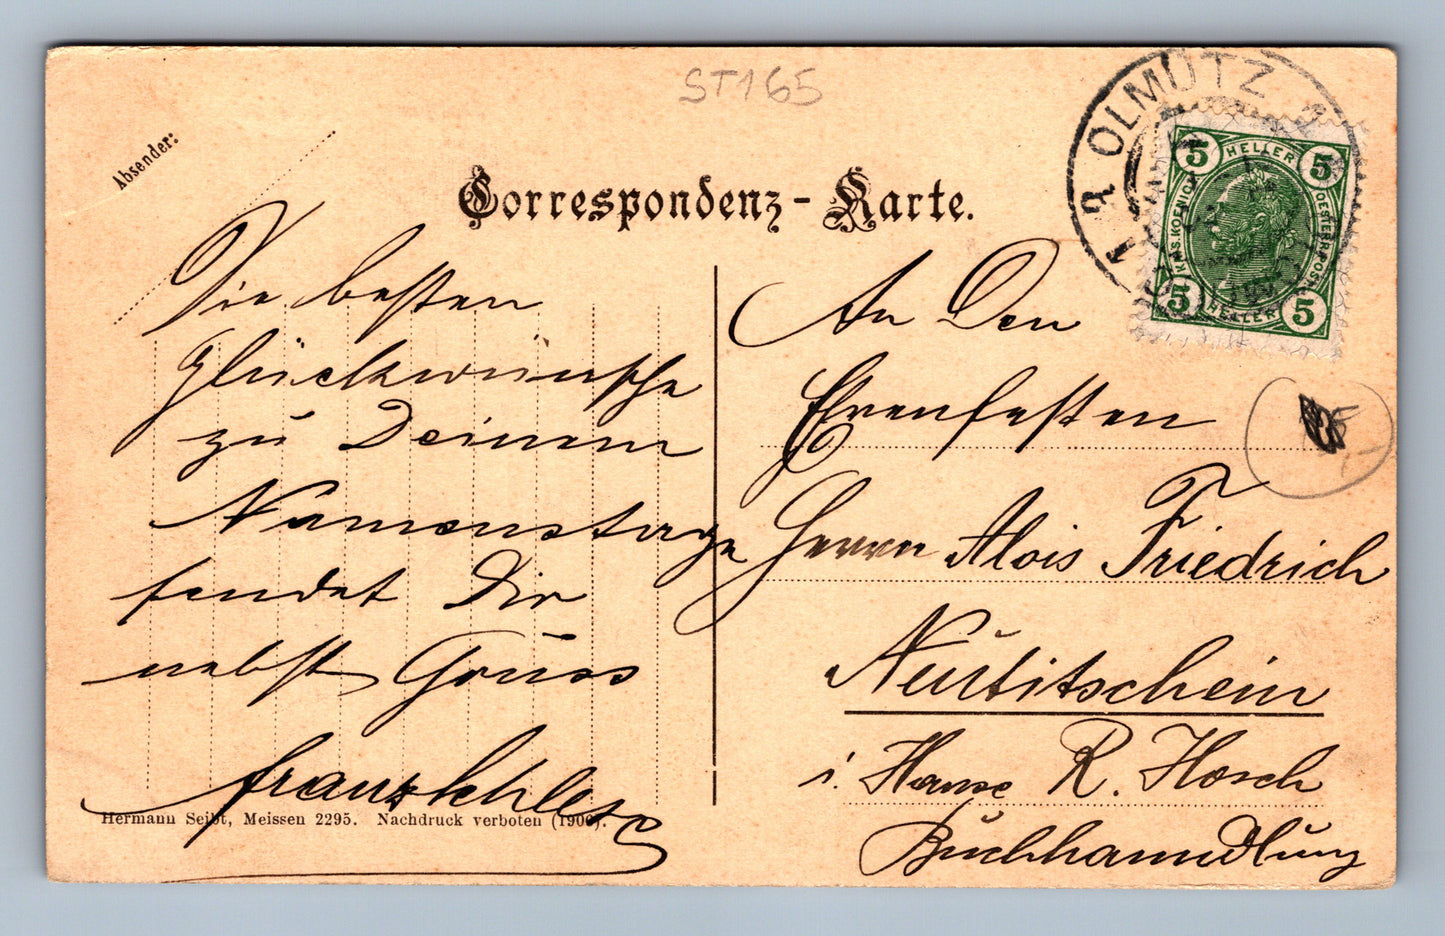 ST165
Absender:
Correspondenz-Karte.
OLMÜTZ
5 HELLER 5
5 HELLER 5
Die besten
Glückwünsche
zu Deinem
Namenstage
sendet Dir
nebst Gruss
Franz
An Den
Ehrenfesten
Herrn Alois Friedrich
Neutitschein
i. Hause R. Hosch
Buchhanndlung
Hermann Seibt, Meissen 2295. Nachdruck verboten (1906).